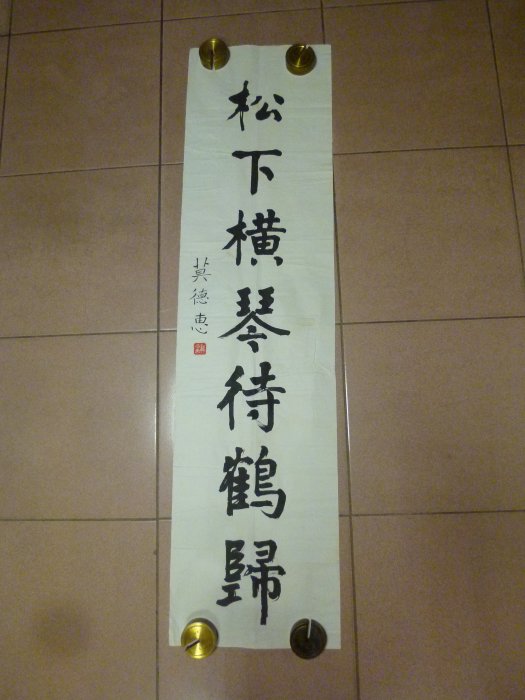 松下橫琴待鶴歸
莫德惠